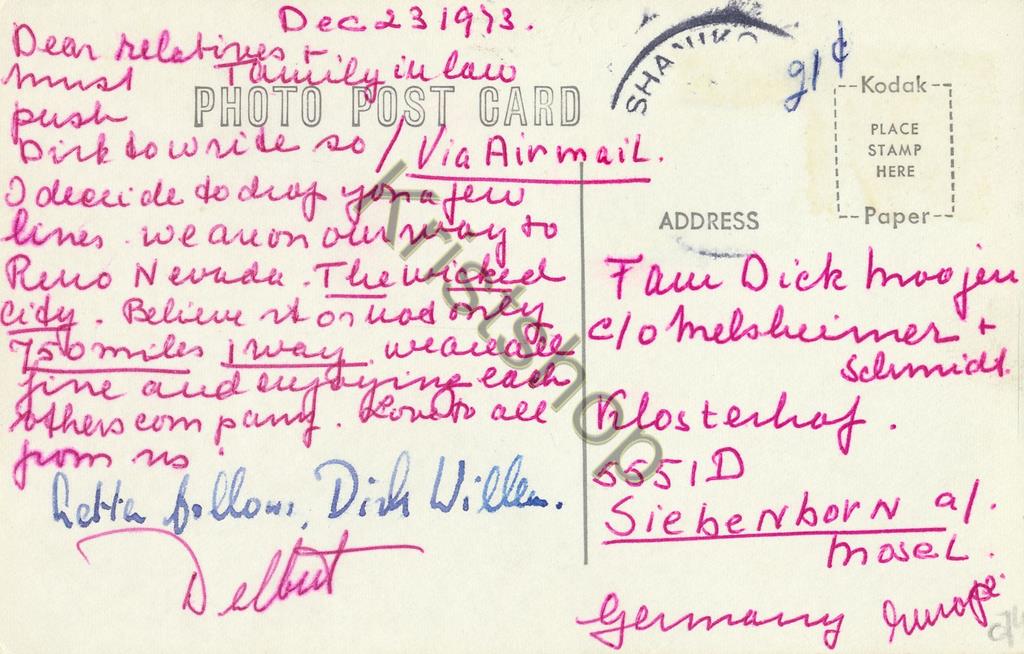 Dec 23 1973.
Dear relatives +
must Family in law
push
PHOTO POST CARD
Dick to write so / Via Airmail.
I decide to drop you a few
lines. we are on our way to
Reno Nevada. The wicked
city. Believe it or not only
750 miles 1 way. we are all
fine and enjoying each
others company. Love to all
from us.
Letter follows, Dick Willem.
Delbert
SHANIKO
91¢
Kodak
PLACE
STAMP
HERE
Paper
ADDRESS
Fam Dick Moojen
c/o Melsheimer +
Schmidt.
Klosterhof.
5551 D
Siebenborn a/.
Mosel.
Germany Europe
Kristshop